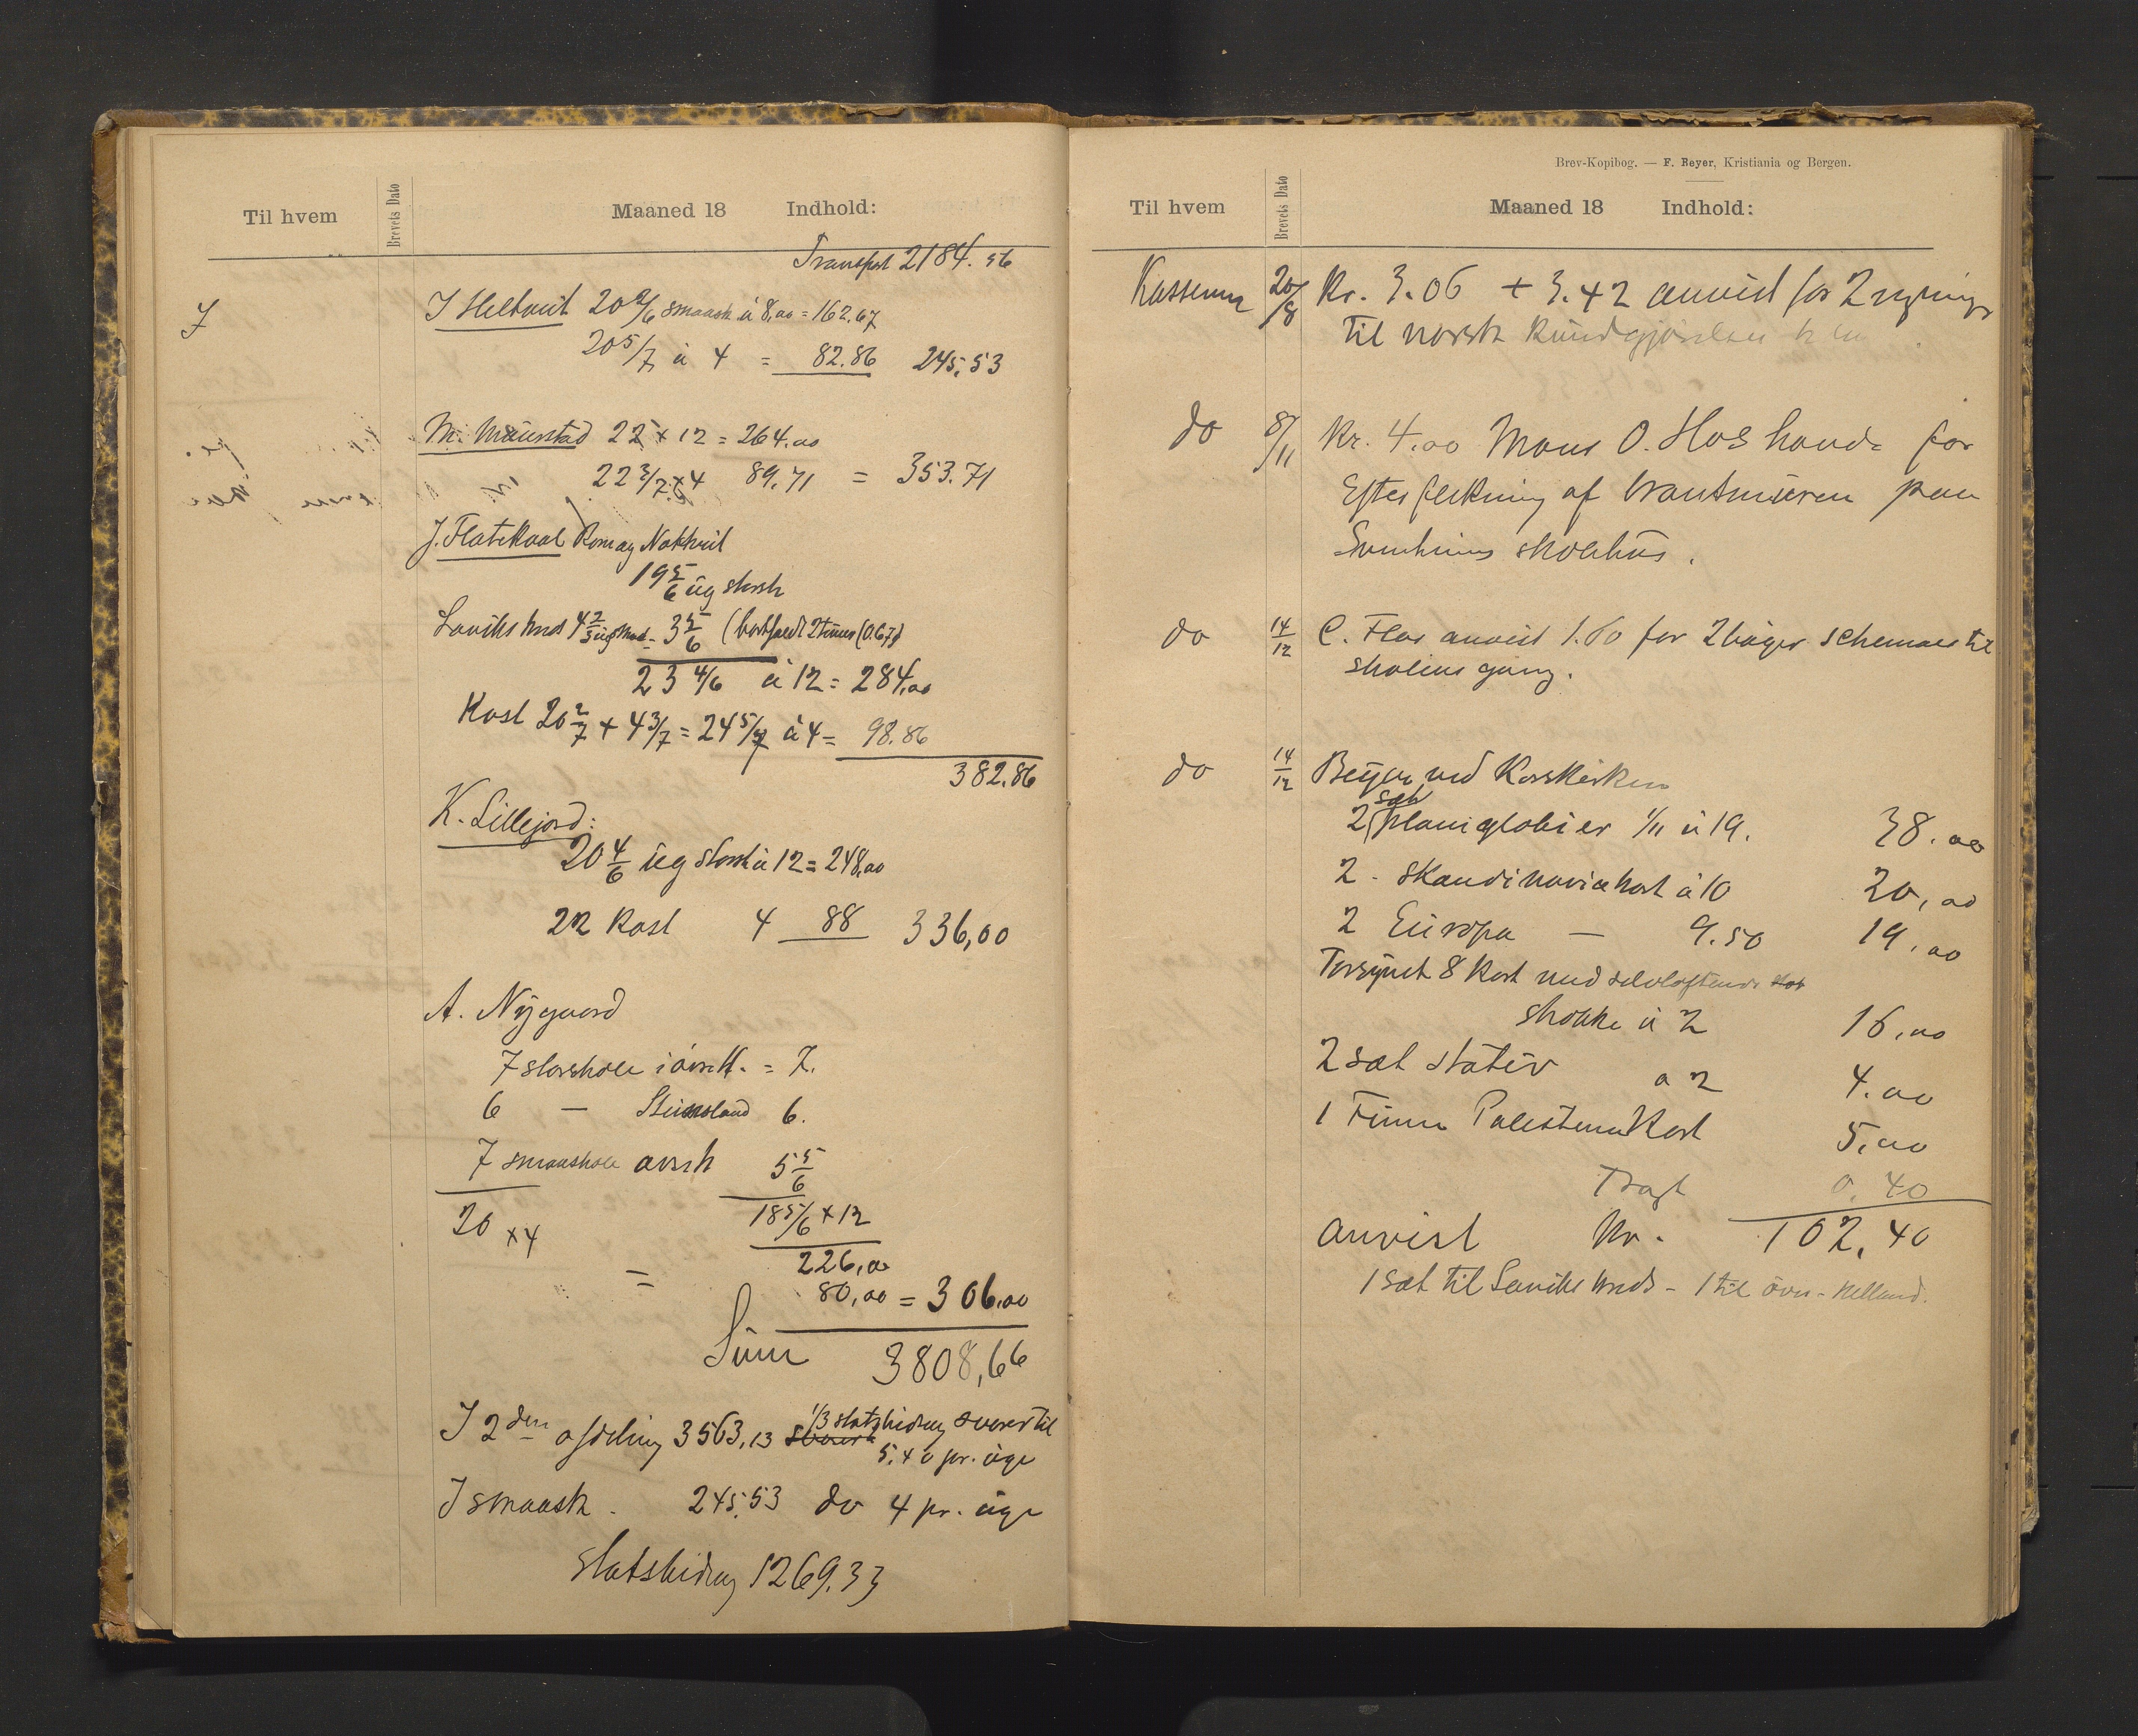 Til hvem
Brevets Dato
Maaned 18 Indhold:
Transport 2184.56
J
J Heltveit 20 2/6 smaask à 8,00 = 162.67
20 5/7 à 4 = 82.86 245,53
M. Maurstad 22 × 12 = 264.00
22 3/7 × 4 89.71 = 353.71
J. Flatekval Rom og Nakkveit
19 5/6 ug storsk
Laviks hus 4 2/3 = 3 5/6 (bortfaldt 2 timer (0.67)
23 4/6 à 12 = 284,00
Kost 20 2/7 + 4 3/7 = 24 5/7 à 4 = 98.86
382.86
K. Lillejord:
20 4/6 ug storsk à 12 = 248,00
22 Kost 4 88 336,00
A. Nygaard
7 storskole i = 7.
6 — Steinsland 6.
7 smaaskole 5 5/6
20 × 4 18 5/6 × 12
226,00
= 80,00 = 306,00
Sum 3808,66
J 2den afdeling 3563,13 1/3 statsbidrag svarer til
5,40 pr. uge
J smaask. 245,53 do 4 pr. uge
statsbidrag 1269,33
Brev-Kopibog. — F. Beyer, Kristiania og Bergen.
Til hvem
Brevets Dato
Maaned 18 Indhold:
Kasseren 20/8 Kr. 3.06 + 3.42 anvist for 2
til norsk Kundgjørelses
do 8/11 Kr. 4,00 Mons O. for
Efterflikning af brantmuren paa
skolehus.
do 14/12 C. anvist 1.60 for 2 bøger schemaer til
skolens gang.
do 14/12 Beyer ved Korskirken
2 sæt planiglobier 1/11 à 19. 38.00
2 - Skandinaviakort à 10 20,00
2 Europa — 9.50 19,00
Forsynet 8 Kort med selvløftende
stokke à 2 16,00
2 sæt stativ à 2 4.00
1 Palestina Kort 5,00
Fragt 0.40
anvist Kr. 102,40
1 sæt til Laviks - 1 til øvre -